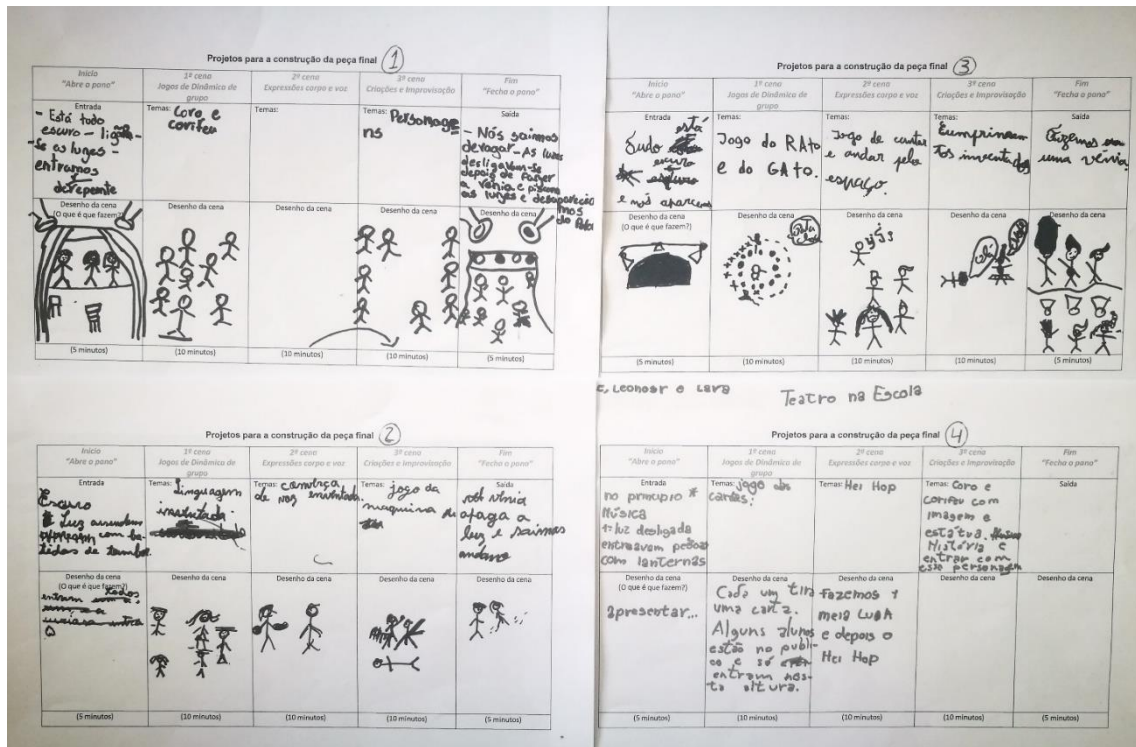 Projetos para a construção da peça final 1
Início
"Abre o pano"
1ª cena
Jogos de Dinâmica de
grupo
2ª cena
Expressões corpo e voz
3ª cena
Criações e Improvisação
Fim
"Fecha o pano"
Entrada
- Está todo
escuro - liga-
-se as luzes -
entramos
derepente
Temas: Coro e
corifeu
Temas:
Temas: Personage
ns
Saída
- Nós saímos
devagar - As luzes
desligavam-se
depois de fazer
a vénia e
as luzes e desaparecía
mos
do
Desenho da cena
(O que é que fazem?)
Desenho da cena
Desenho da cena
Desenho da cena
Desenho da cena
(5 minutos)
(10 minutos)
(10 minutos)
(10 minutos)
(5 minutos)
Projetos para a construção da peça final 2
Início
"Abre o pano"
1ª cena
Jogos de Dinâmica de
grupo
2ª cena
Expressões corpo e voz
3ª cena
Criações e Improvisação
Fim
"Fecha o pano"
Entrada
Escuro
Luz acendem
com ba-
tidas de tambor
Temas: Linguagem
inventada
Temas:
de nos inventada.
Temas: jogo da
maquina
Saída
vénia
apaga a
luz e saimos
Desenho da cena
(O que é que fazem?)
entram todos
Desenho da cena
Desenho da cena
Desenho da cena
Desenho da cena
(5 minutos)
(10 minutos)
(10 minutos)
(10 minutos)
(5 minutos)
Projetos para a construção da peça final 3
Início
"Abre o pano"
1ª cena
Jogos de Dinâmica de
grupo
2ª cena
Expressões corpo e voz
3ª cena
Criações e Improvisação
Fim
"Fecha o pano"
Entrada
Tudo está
escuro
e nós
Temas:
Jogo do RAto
e do GAto.
Temas:
Jogo de
e andar pelo
espaço.
Temas:
Cumprimen
tos inventados
Saída
Fazemos
uma vénia.
Desenho da cena
(O que é que fazem?)
Desenho da cena
Desenho da cena
Desenho da cena
Olá
Desenho da cena
(5 minutos)
(10 minutos)
(10 minutos)
(10 minutos)
(5 minutos)
, Leonor e Lara
Teatro na Escola
Projetos para a construção da peça final 4
Início
"Abre o pano"
1ª cena
Jogos de Dinâmica de
grupo
2ª cena
Expressões corpo e voz
3ª cena
Criações e Improvisação
Fim
"Fecha o pano"
Entrada
no princípio *
Música
1º luz desligada
entravam pessoas
com lanternas
Temas: jogo das
cartas:
Temas: Hei Hop
Temas: Coro e
corifeu com
imagem e
estátua.
História e
entrar com
esse personagem
Saída
Desenho da cena
(O que é que fazem?)
apresentar...
Desenho da cena
Cada um tira
uma carta.
Alguns alunos
estão no publi-
co e só
entram nes-
ta altura.
Desenho da cena
fazemos 1
meia Lua
e depois o
Hei Hop
Desenho da cena
Desenho da cena
(5 minutos)
(10 minutos)
(10 minutos)
(10 minutos)
(5 minutos)